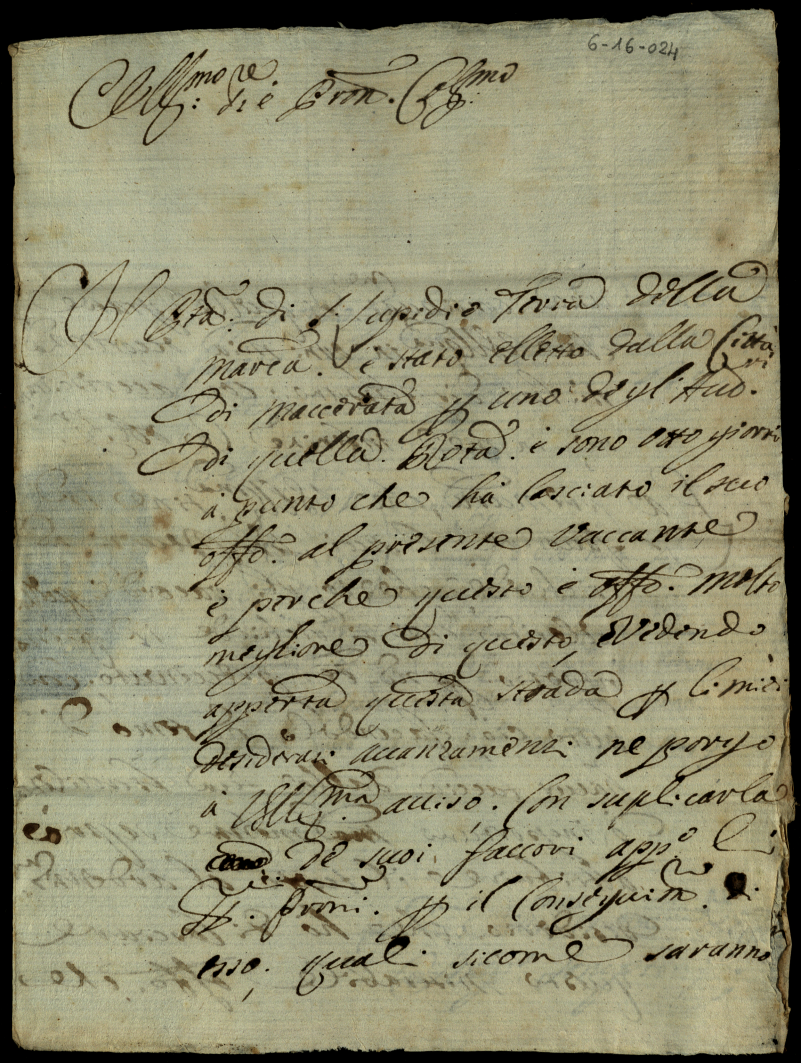 6-16-024
Ill:mo re di è Pron. Col:mo
Il Pta. di S. Lupidio Terra della
marca. è stato elletto dalla Città
di maccerata p uno degl' Aud.ri
di quella. Rota. e sono otto giorni
à punto che hà lasciato il suo
offo. al presente vaccante
è perche questo è offo. molto
megliore di questo, e Vedendo
apperta questa strada p li miei
desiderati auanzamenti ne porgo
à VS Ill:ma auiso, Con suplicarla
de suoi fauori app:o li
SS.ri Proni. p il Conseguim. di
esso; quali sicome saranno